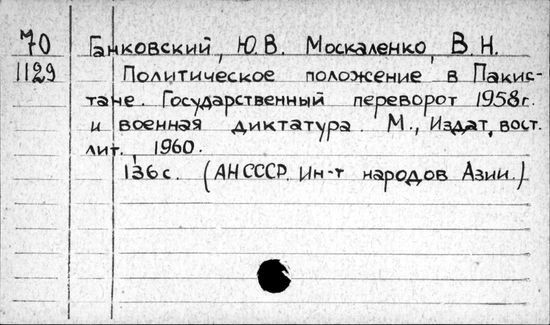 70 Ганковский, Ю.В. Москаленко, В.Н.
1129 Политическое положение в Пакис-
тане. Государственный переворот 1958г.
и военная диктатура. М., Издат. вост.
лит., 1960.
136с. (АН СССР. Ин-т народов Азии.)